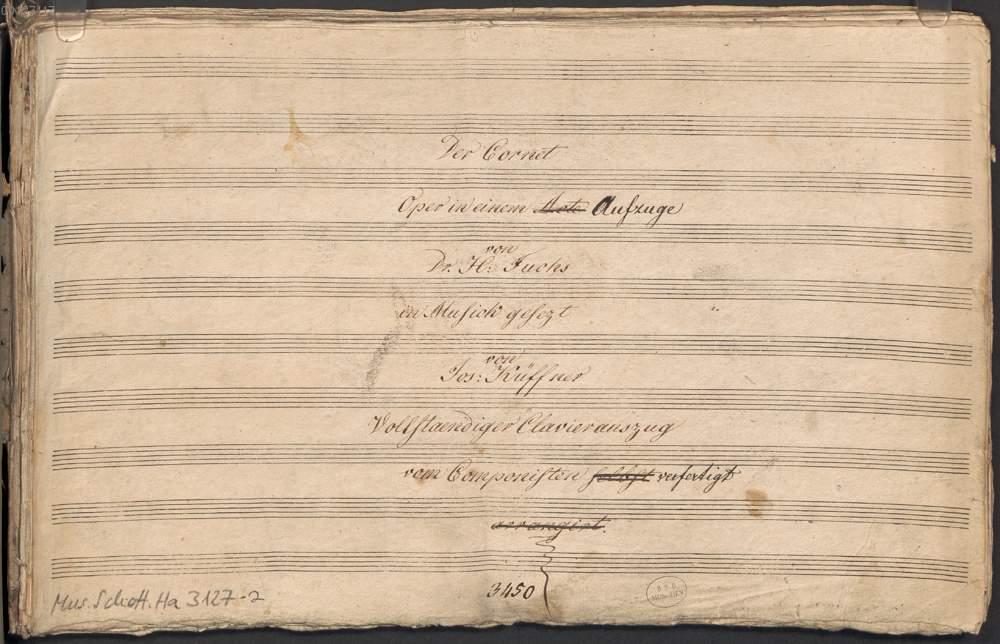 Der Cornet
Oper in einem Acte Aufzuge
von
Dr. H: Fuchs
in Musick gesezt
von
Jos: Küffner
Vollstaendiger Clavierauszug
vom Componisten selbst verfertigt
arrangirt.
3450
Mus. Schott. Ha 3127-2
BSB
MÜNCHEN